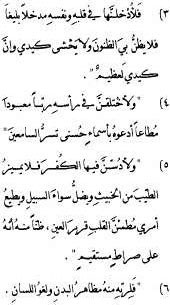 ٣) فلأدخلنّها في قلبه ونفسه مدخلاً بليغاً
فلا يظنّ بي الظنون ولا يخشى كيدي وإنّ
كيدي لعظيم" .
٤) "ولأختلقنّ في رأسه ربّاً معبوداً
مطاعاً أدعوه بأسماء حسنى تسرّ السامعين"
٥) "ولأدسّنّ فيها الكفر فلا يميز
الطيّب من الخبيث ويضلّ سواء السبيل ويطيع
أمري مطمئنّ القلب قرير العين، ظنّاً منه أنّه
على صراط مستقيم" .
٦) "فلبرّته منه مظاهر البدن ولغو اللسان .